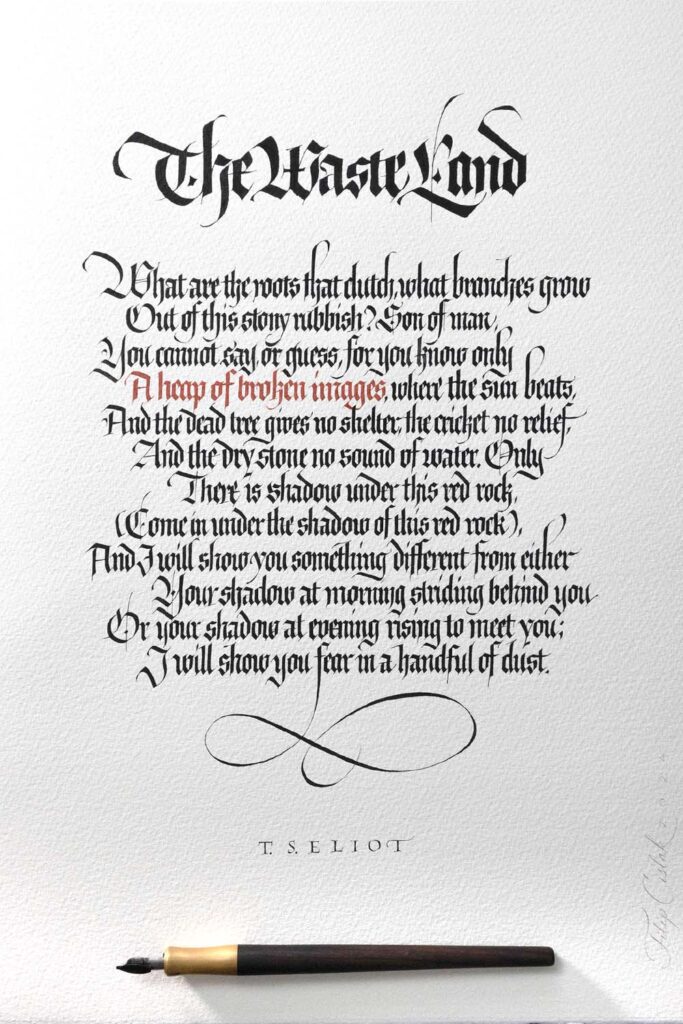 The Waste Land
What are the roots that clutch, what branches grow
Out of this stony rubbish? Son of man,
You cannot say or guess, for you know only
A heap of broken images, where the sun beats,
And the dead tree gives no shelter, the cricket no relief,
And the dry stone no sound of water. Only
There is shadow under this red rock,
(Come in under the shadow of this red rock),
And I will show you something different from either
Your shadow at morning striding behind you
Or your shadow at evening rising to meet you;
I will show you fear in a handful of dust.
T. S. ELIOT
Filip Cislak 2024